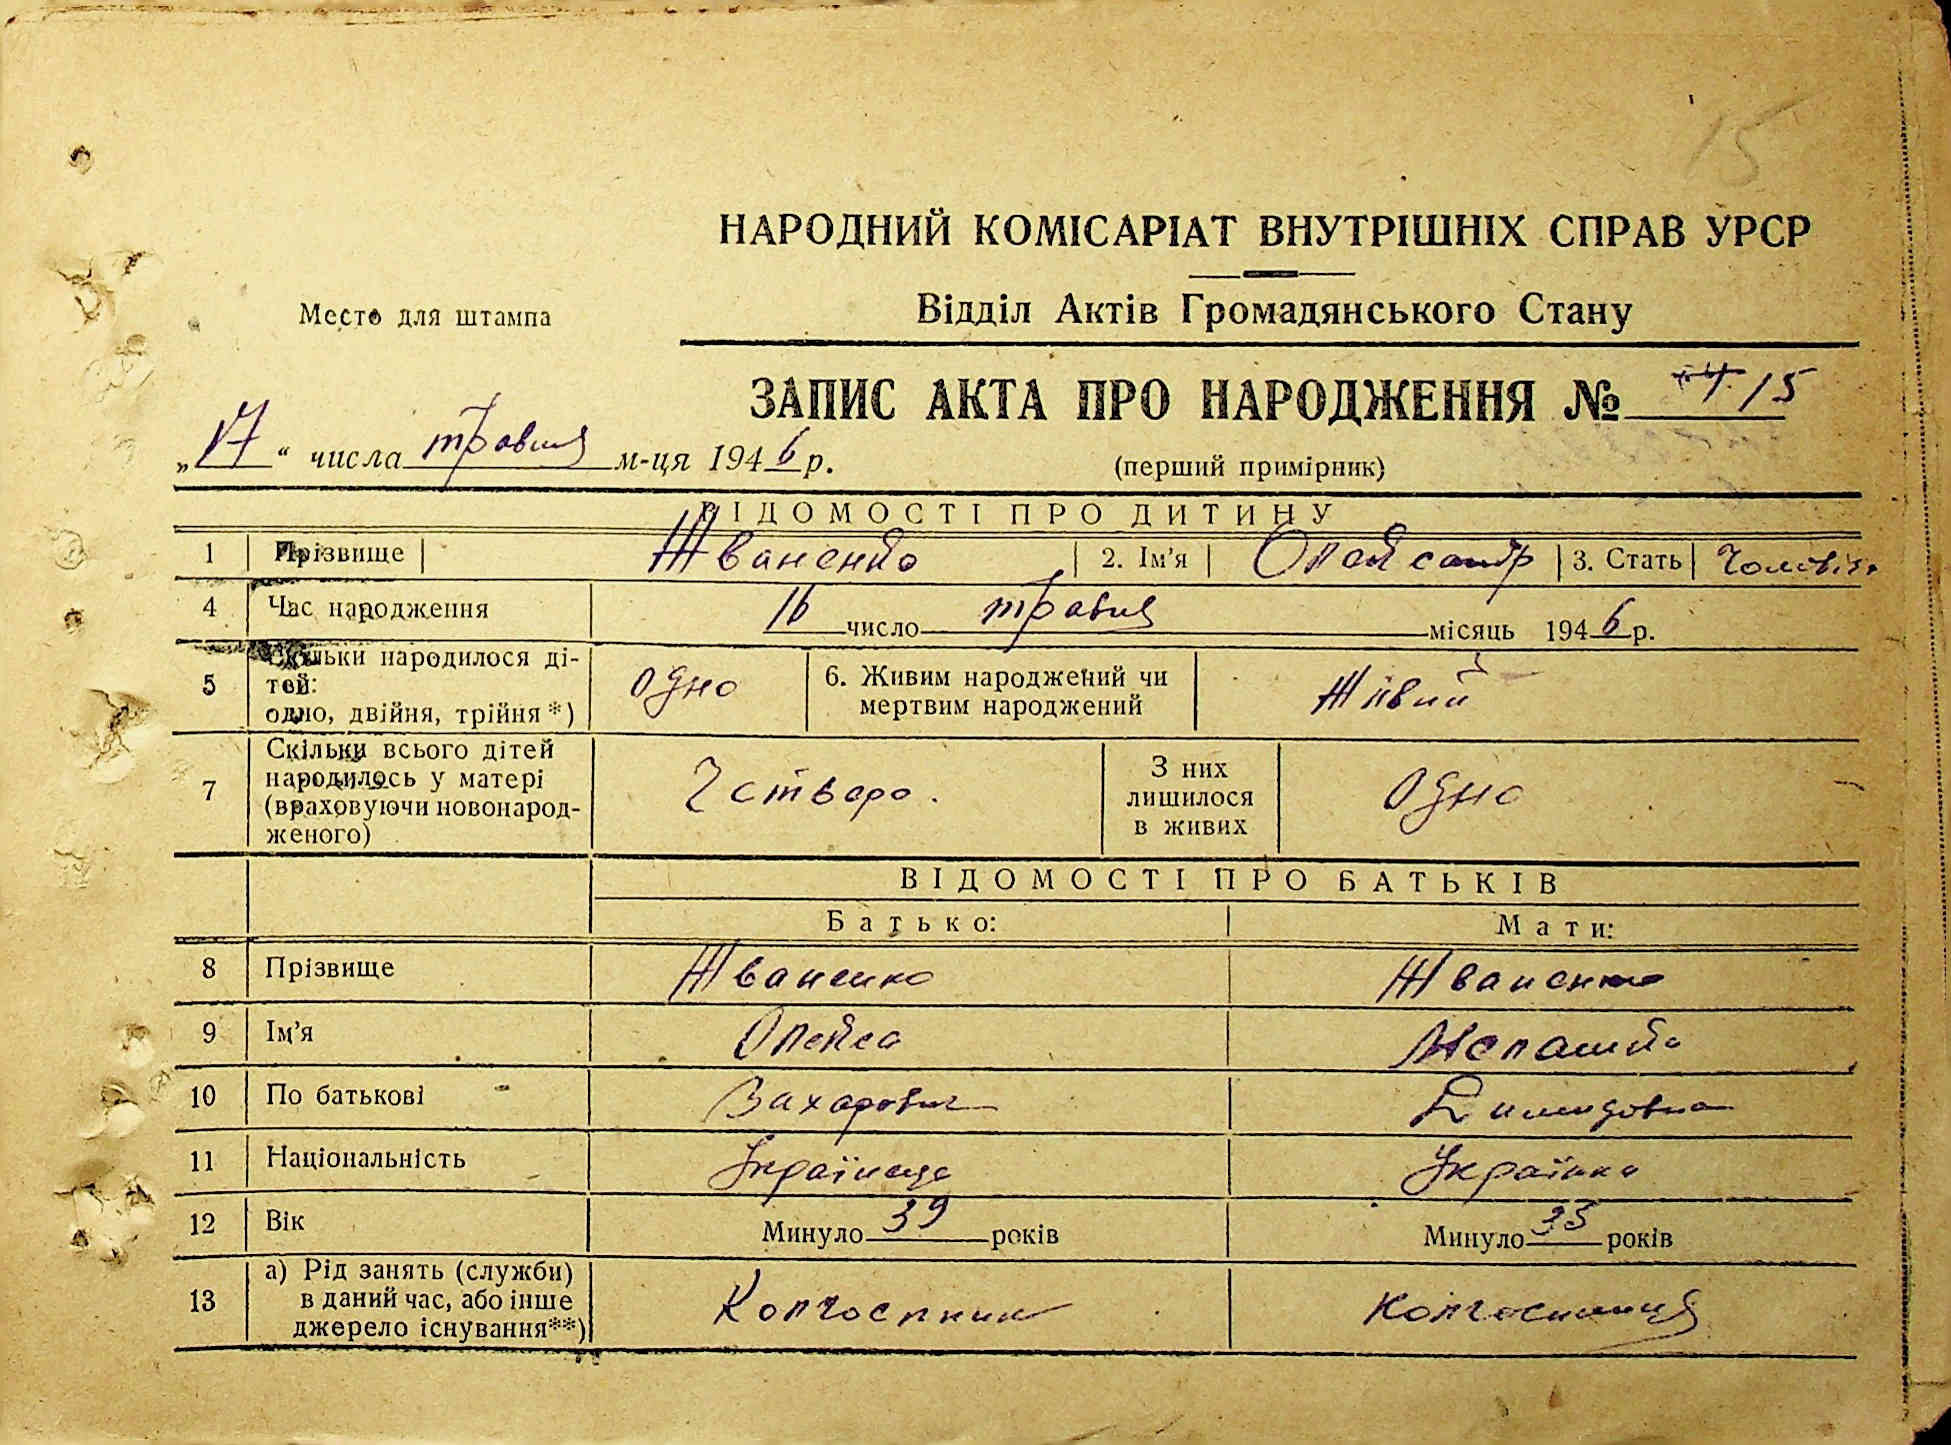 15
НАРОДНИЙ КОМІСАРІАТ ВНУТРІШНІХ СПРАВ УРСР
Место для штампа
Відділ Актів Громадянського Стану
ЗАПИС АКТА ПРО НАРОДЖЕННЯ № 15
„17“ числа травня м-ця 1946 р.
(перший примірник)
ВІДОМОСТІ ПРО ДИТИНУ
1 Прізвище Жваненко 2. Ім’я Олександр 3. Стать
4 Час народження 16 число травня місяць 1946 р.
5 Скільки народилося ді-
тей:
одно, двійня, трійня*)
одно
6. Живим народжений чи
мертвим народжений
Живий
7 Скільки всього дітей
народилось у матері
(враховуючи новонарод-
женого)
Четверо.
З них
лишилося
в живих
Одно
ВІДОМОСТІ ПРО БАТЬКІВ
Батько: Мати:
8 Прізвище Жваненко Жваненко
9 Ім’я Олекса
10 По батькові Захарович Демидовна
11 Національність Українець Українка
12 Вік Минуло 39 років Минуло 35 років
13 а) Рід занять (служби)
в даний час, або інше
джерело існування**)
Колгоспник Колгоспниця